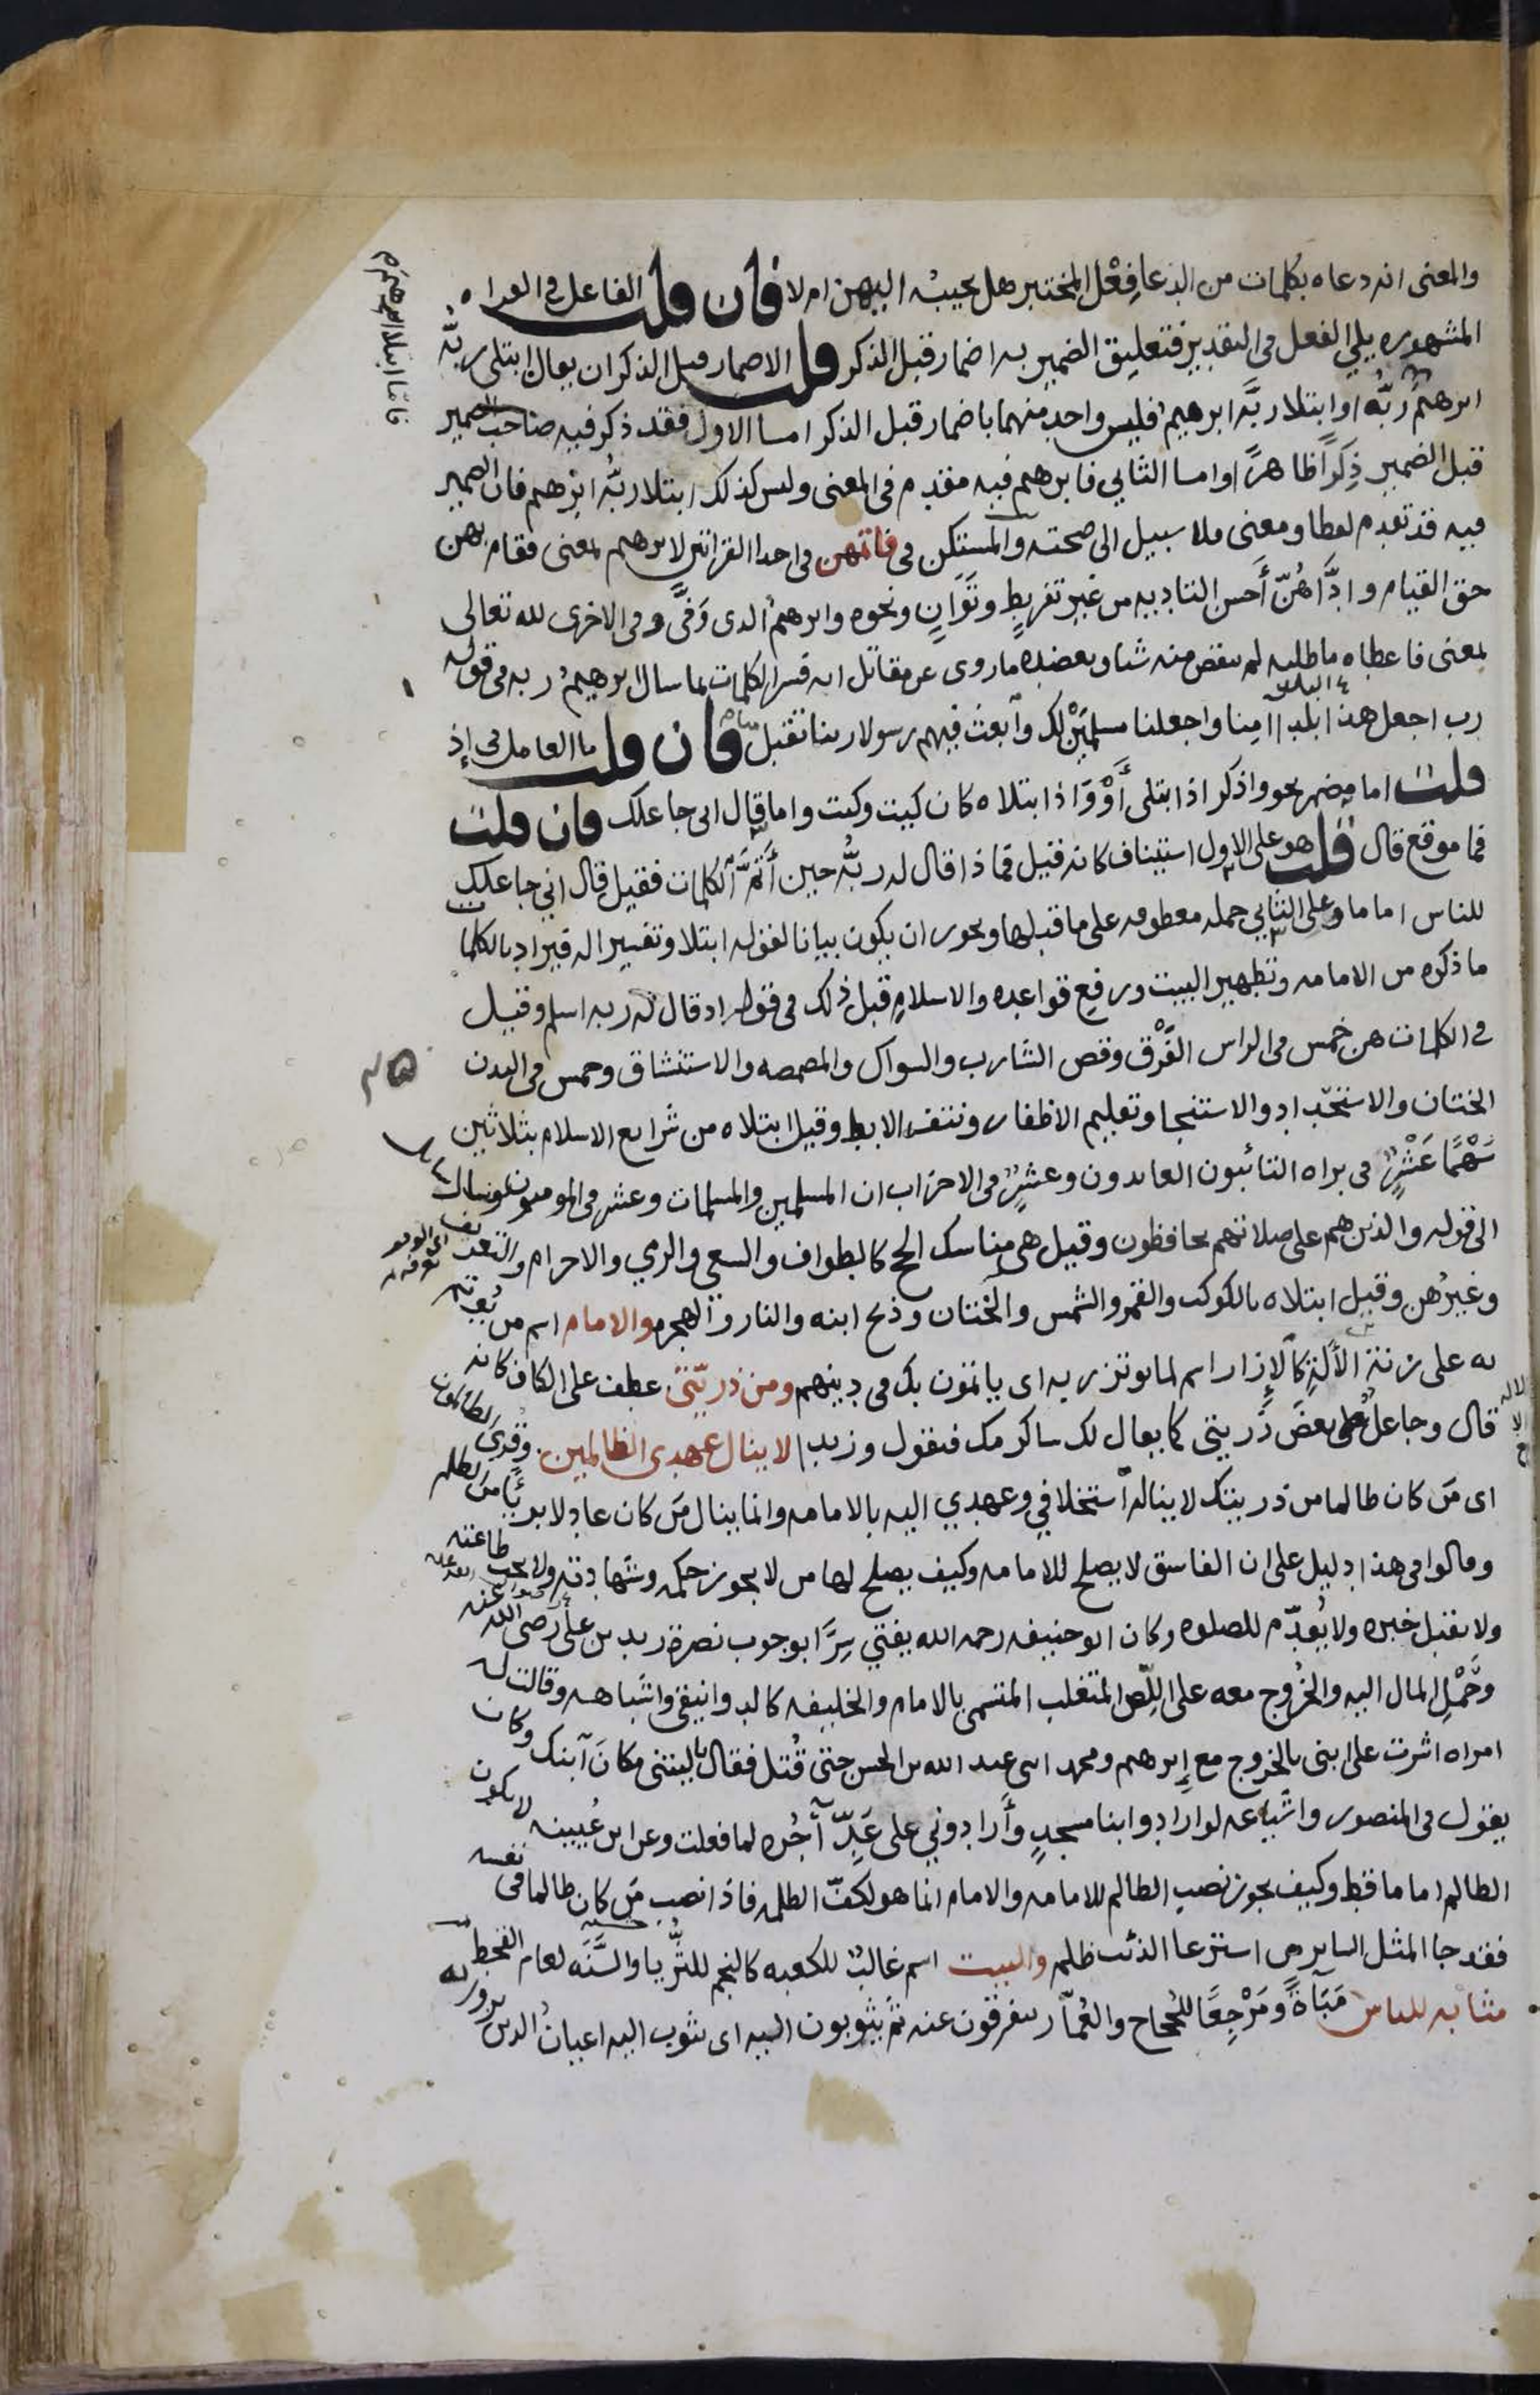 والمعنى انه دعاه بكلمات من الدعا فِعْل المختبر هل يجيبه اليهن ام لا فان قلت الفاعل في القراه
المشهوره يلي الفعل في التقدير فتعليق الضمير به اضمار قبل الذكر قلت الاضمار قبل الذكر ان يقال ابتلى ربُّه
ابرهيمَ ربُّه او ابتلا ربَّه ابرهيمُ فليس واحد منهما باضمار قبل الذكر اما الاول فقد ذكر فيه صاحب الضمير
قبل الضمير ذِكرًا ظاهرًا واما الثاني فابرهيم فيه مقدم في المعنى وليس كذلك ابتلا ربُّه ابرهيم فان الضمير
فيه قد تقدم لفظا ومعنى فلا سبيل الى صحته والمستكن في فاتمهن في احدا القراتين لابرهيم بمعنى فقام بهن
حق القيام وادَّاهُنّ أَحسن التاديه من غير تفريطٍ وتَوَانٍ ونحوه وابرهيم الذى وَفَّى وفي الاخرى لله تعالى
بمعنى فاعطاه ما طلبه لم ينقص منه شيا ويعضده ما روى عن مقاتل انه فسر الكلمات بما سال ابرهيمُ ربه في قوله
رب اجعل هذا بلدا آمِنا واجعلنا مسلمَيْن لك وابعث فيهم رسولا ربنا تقبل منا فان قلت ما العامل في إذ
قلت اما مضمر نحو واذكر اذ ابتلى أَوْ وَاذ ابتلاه كان كيت وكيت واما قال اني جاعلك فان قلت
فما موقع قال قلت هو على الاول استيناف كانه قيل فماذا قال له ربُّه حين أَتَمَّ الكلمات فقيل قال اني جاعلك
للناس اماما وعلى الثاني جمله معطوفه على ما قبلها ويجوز ان يكون بيانا لقوله ابتلا وتفسيرا له فيراد بالكلمات
ما ذكره من الامامه وتطهير البيت ورفع قواعده والاسلام قبل ذلك في قوله اذ قال له ربه اسلم وقيل
في الكلمات هن خمس في الراس الفَرْق وقص الشارب والسواك والمضمضه والاستنشاق وخمس في البدن
الختان والاستحداد والاستنجا وتقليم الاظفار ونتف الابط وقيل ابتلاه من شرايع الاسلام بثلاثين
سَهْمًا عَشْرٌ في براه التائبون العابدون وعشرٌ في الاحزاب ان المسلمين والمسلمات وعشر في المومنون وسال
الى قوله والذين هم على صلاتهم يحافظون وقيل هى مناسك الحج كالطواف والسعي والرمي والاحرام والتعريف
وغيرُهن وقيل ابتلاه بالكوكب والقمر والشمس والختان وذبح ابنه والنار والهجره والامام اسم من يُوتم
به على زنة الألَةِ كالإزار اسم لما يوتزر به اى ياتمون بك في دينهم ومن ذريّتي عطف على الكاف كانه
قال وجاعل بعضَ ذُريتي كما يقال لك ساكرمك فتقول وزيدا لا ينال عهدى الظالمين وقرى الظالمون
اى مَن كان ظالما من ذريتك لا يناله استخلافي وعهدي اليه بالامامه وانما ينال مَن كان عادلا بريًّا من الظلم
وقالوا في هذا دليل على ان الفاسق لا يصلح للامامه وكيف يصلح لها من لا يجوز حكمه وشهادته ولا تجب طاعته
ولا يقبل خبره ولا يُقدّم للصلوه وكان ابو حنيفه رحمه الله يفتي سِرًّا بوجوب نصرة زيد بن علي رضى الله عنه
وحَمْلِ المال اليه والخُروج معه على اللِّص المتغلب المتسمى بالامام والخليفه كالدوانيقي واشباهه وقالت له
امراه اشرت على ابنى بالخروج مع إبرهيم ومحمد ابنى عبد الله بن الحسن حتى قُتل فقال يا ليتني مكانَ ابنك وكان
يقول في المنصور واشياعه لو ارادوا بنا مسجدٍ وأَرادوني على عَدّ آجُرّه لما فعلت وعن ابن عُيينه لا يكون
الظالم اماما قط وكيف يجوز نصب الظالم للامامه والامام انما هو لكفّ الظلمه فاذا نصب مَن كان ظالما في نفسه
فقد جا المثل الساير من استرعا الذئب ظلم والبيت اسم غالبٌ للكعبه كالنجم للثُّريا والسَّنَه لعام القحط
مثابه للناس مَبَآةً ومَرْجِعًا للحُجاج والعُمّار يتفرقون عنه ثم يثوبون اليه اى يثوب اليه اعيانُ الذين يزورونه